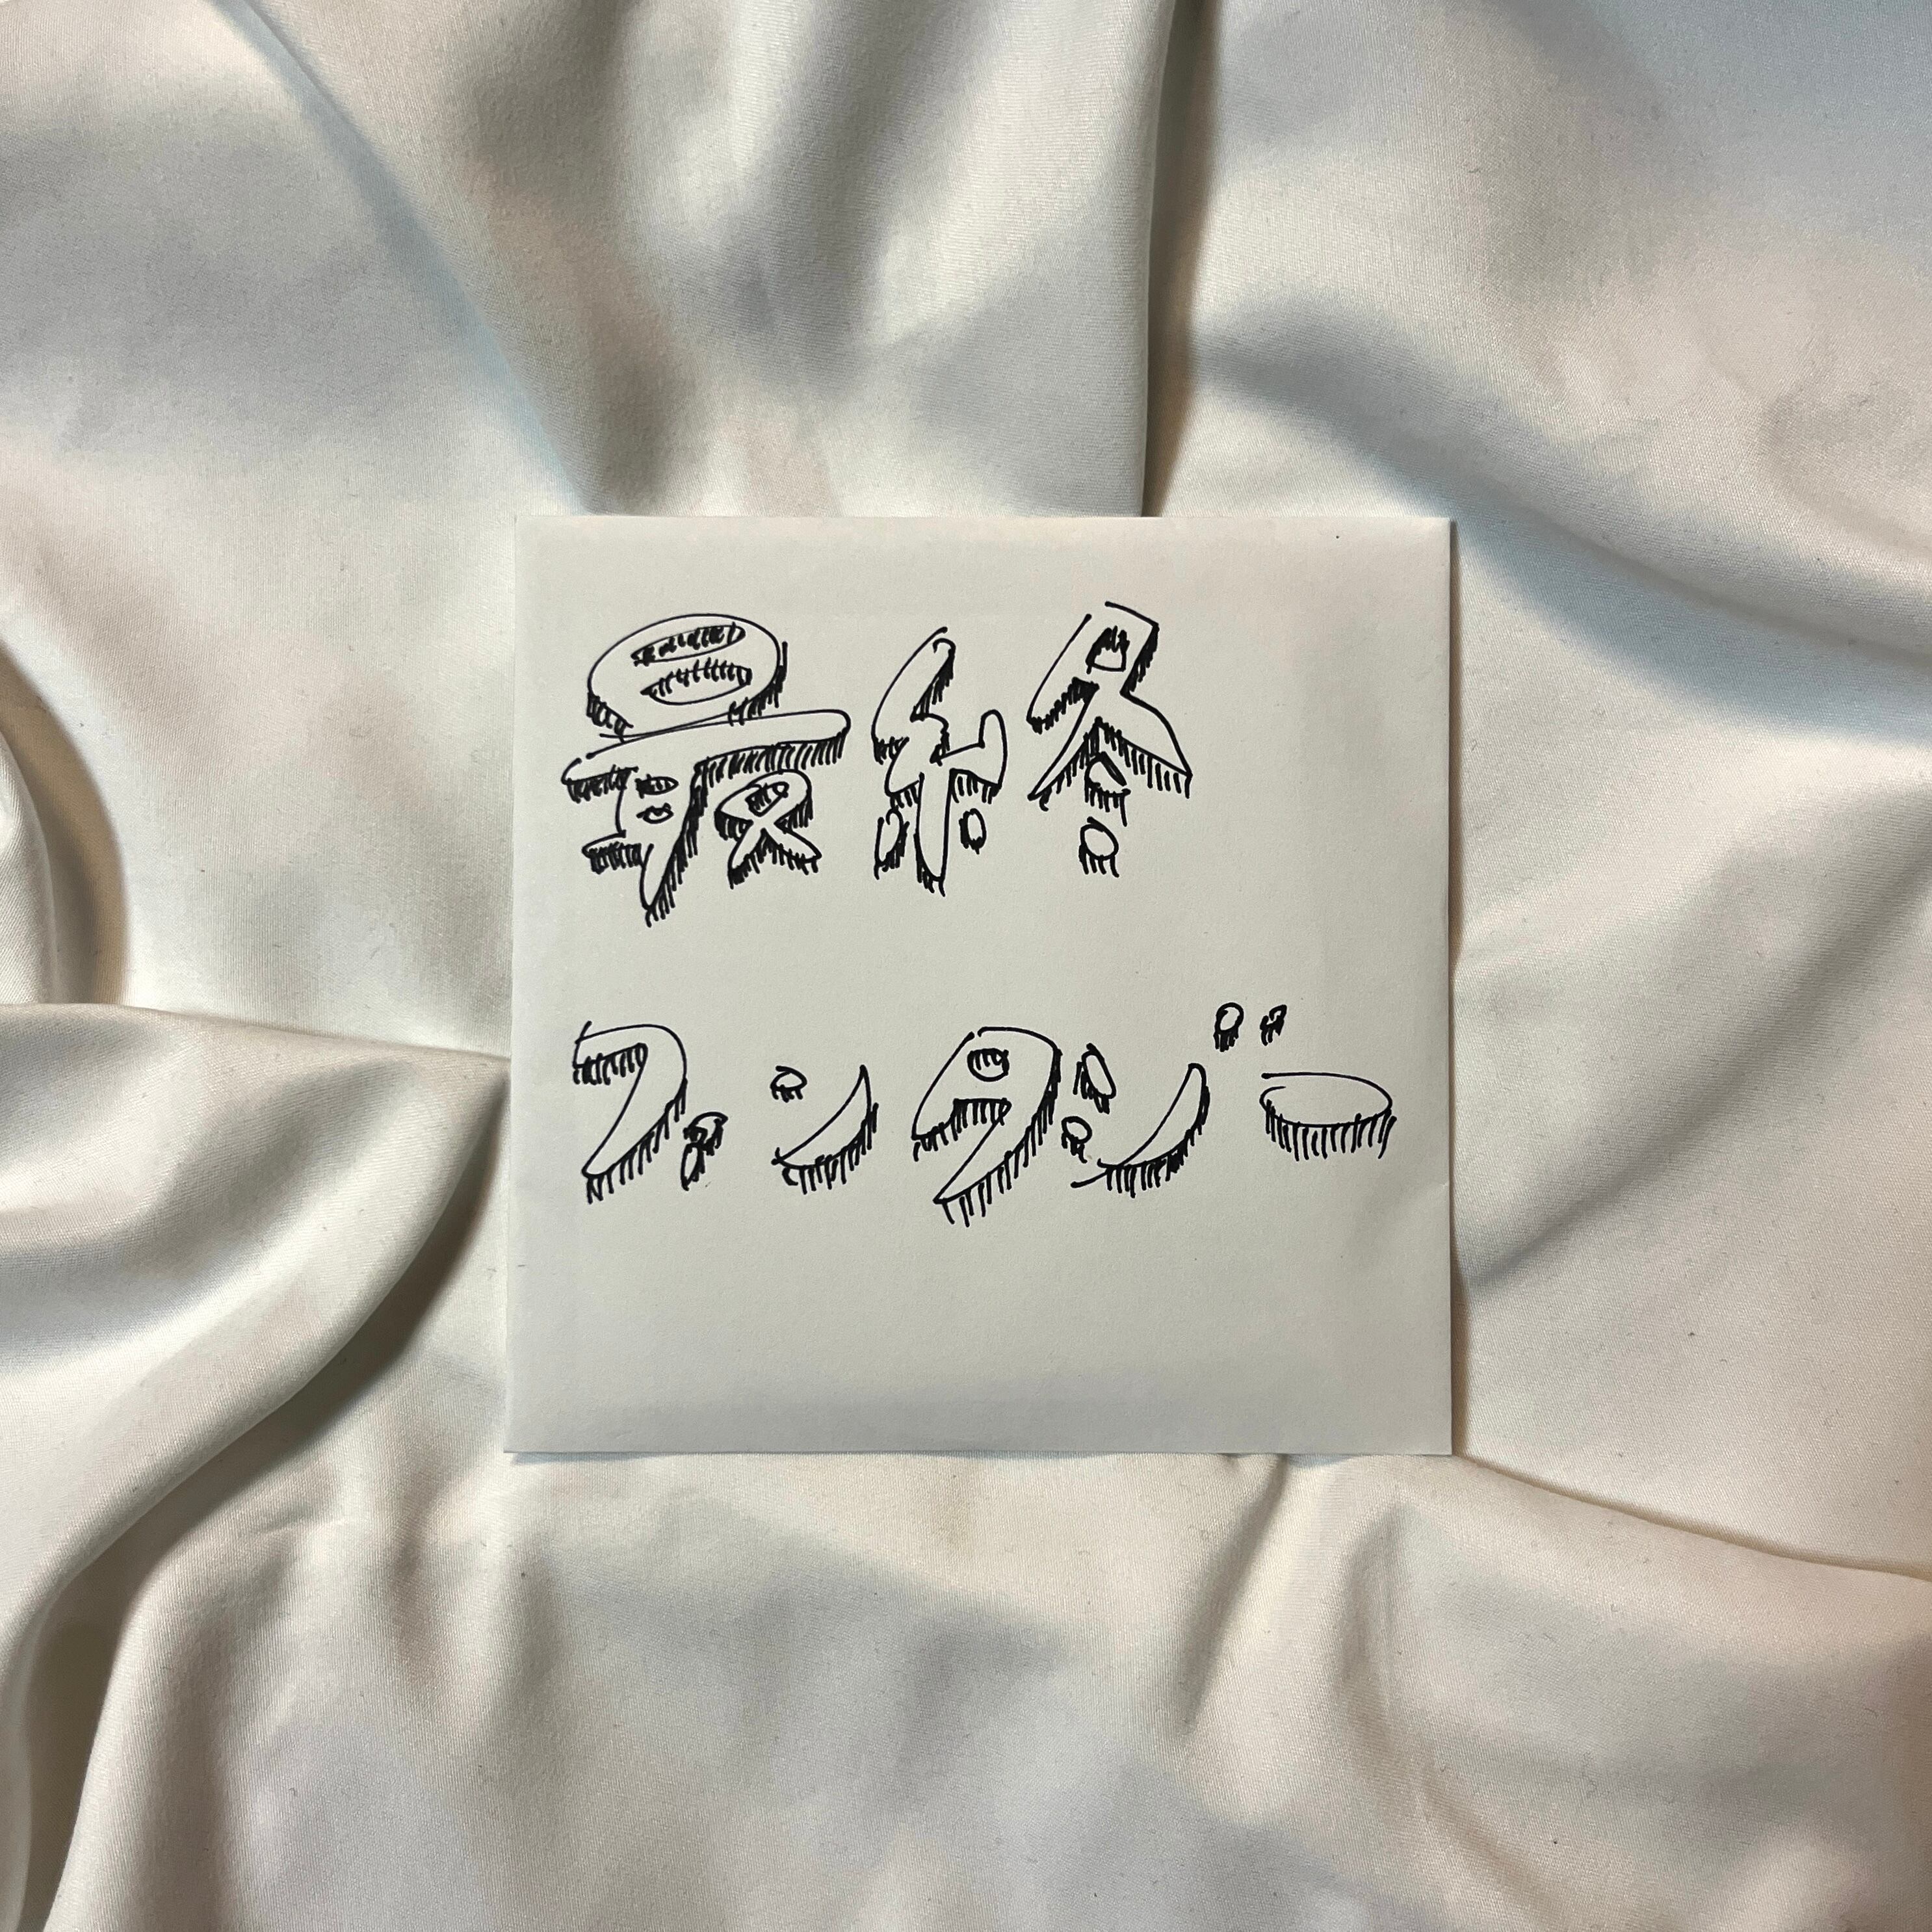 最終
ファンタジー